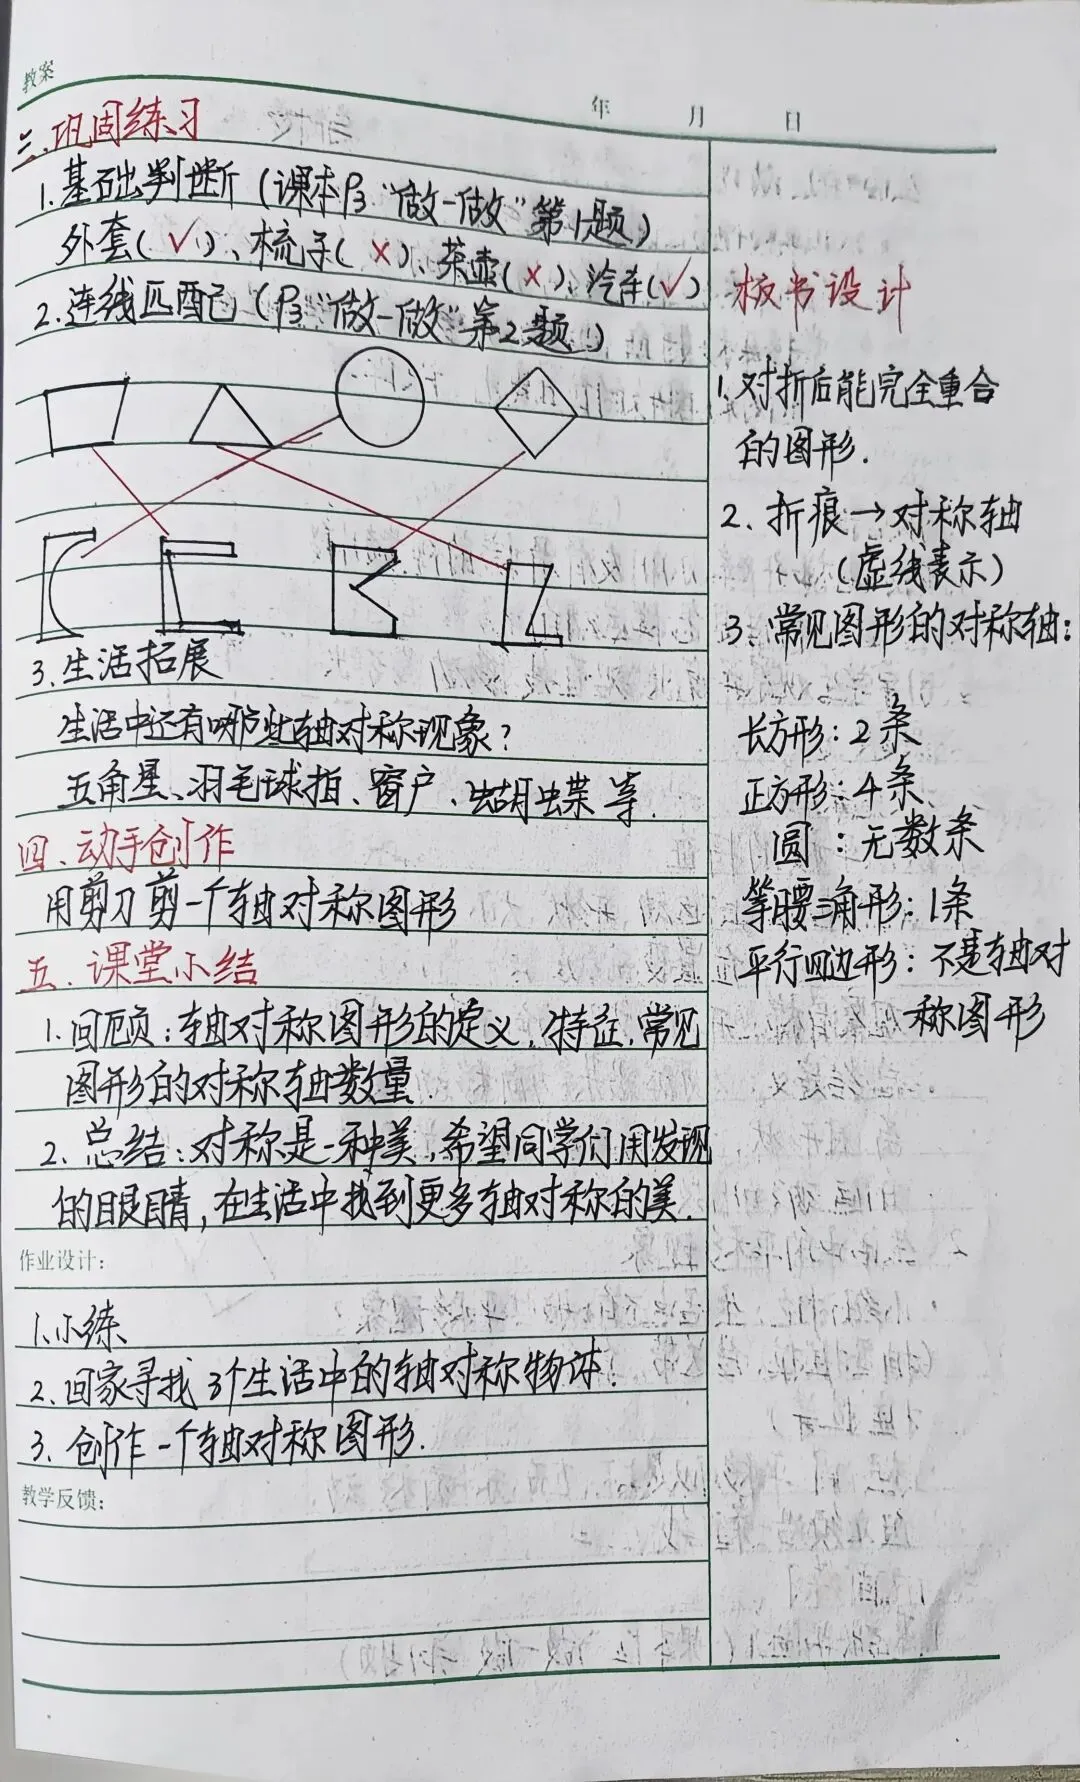 教案
年 月 日
三、巩固练习
1.基础判断(课本P3"做一做"第1题)
外套(√)、梳子(×)、茶壶(×)、汽车(√)
2.连线匹配(P3"做一做"第2题)
3.生活拓展
生活中还有哪些轴对称现象?
五角星、羽毛球拍、窗户、蝴蝶等.
四、动手创作
用剪刀剪一个轴对称图形
五、课堂小结
1.回顾:轴对称图形的定义,特征,常见
图形的对称轴数量.
2.总结:对称是一种美,希望同学们用发现
的眼睛,在生活中找到更多轴对称的美.
作业设计:
1.小练
2.回家寻找3个生活中的轴对称物体.
3.创作一个轴对称图形.
教学反馈:
板书设计
1.对折后能完全重合
的图形.
2.折痕→对称轴
(虚线表示)
3.常见图形的对称轴:
长方形:2条
正方形:4条
圆:无数条
等腰三角形:1条
平行四边形:不是轴对
称图形